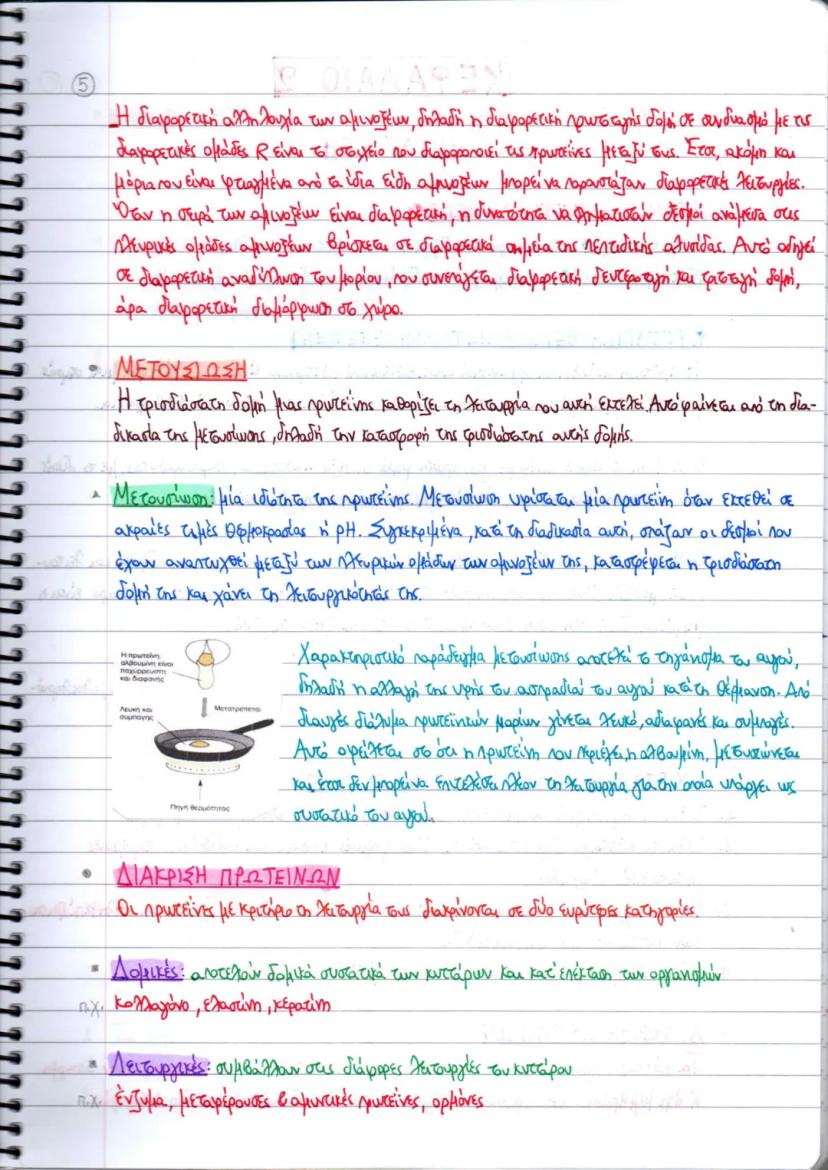 5
Η διαφορετική αλληλουχία των αμινοξέων, δηλαδή η διαφορετική πρωτοταγής δομή σε συνδυασμό με τις
διαφορετικές ομάδες R είναι το στοιχείο που διαφοροποιεί τις πρωτεΐνες μεταξύ τους. Έτσι, ακόμη και
μόρια που είναι φτιαγμένα από τα ίδια είδη αμινοξέων μπορεί να παρουσιάζουν διαφορετικές λειτουργίες.
Όταν η σειρά των αμινοξέων είναι διαφορετική, η δυνατότητα να σχηματισουν δεσμοί ανάμεσα στις
πλευρικές ομάδες αμινοξέων βρίσκεται σε διαφορετικά σημεία της πεπτιδικής αλυσίδας. Αυτό οδηγεί
σε διαφορετική αναδίπλωση του μορίου, που συνεπάγεται διαφορετική δευτεροταγή και τριτοταγή δομή,
άρα διαφορετική διαμόρφωση στο χώρο.
• ΜΕΤΟΥΣΙΩΣΗ
Η τρισδιάστατη δομή μιας πρωτεΐνης καθορίζει τη λειτουργία που αυτή εκτελεί. Αυτό φαίνεται από τη δια-
δικασία της μετουσίωσης, δηλαδή την καταστροφή της τρισδιάστατης αυτής δομής.
▲ Μετουσίωση: μία ιδιότητα της πρωτεΐνης. Μετουσίωση υφίσταται μία πρωτεΐνη όταν εκτεθεί σε
ακραίες τιμές θερμοκρασίας ή pH. Συγκεκριμένα, κατά τη διαδικασία αυτή, σπάζουν οι δεσμοί που
έχουν αναπτυχθεί μεταξύ των πλευρικών ομάδων των αμινοξέων της, καταστρέφεται η τρισδιάστατη
δομή της και χάνει τη λειτουργικότητάς της.
Η πρωτεΐνη
αλβουμίνη είναι
παχύρρευστη
και διαφανής
Λευκή και
συμπαγής
Μετατρέπεται
Πηγή θερμότητας
Χαρακτηριστικό παράδειγμα μετουσίωσης αποτελεί το τηγάνισμα του αυγού,
δηλαδή η αλλαγή της υφής του ασπραδιού του αυγού κατά τη θέρμανση. Από
διαυγές διάλυμα πρωτεϊνικών μορίων γίνεται λευκό, αδιαφανές και συμπαγές.
Αυτό οφείλεται στο ότι η πρωτεΐνη που περιέχει, η αλβουμίνη, μετουσιώνεται
και έτσι δεν μπορεί να επιτελέσει πλέον τη λειτουργία για την οποία υπάρχει ως
συστατικό του αυγού.
• ΔΙΑΚΡΙΣΗ ΠΡΩΤΕΙΝΩΝ
Οι πρωτεΐνες με κριτήριο τη λειτουργία τους διακρίνονται σε δύο ευρύτερες κατηγορίες.
▪ Δομικές: αποτελούν δομικά συστατικά των κυττάρων και κατ' επέκταση των οργανισμών
π.χ. κολλαγόνο, ελαστίνη, κερατίνη
▪ Λειτουργικές: συμβάλλουν στις διάφορες λειτουργίες του κυττάρου
π.χ. ένζυμα, μεταφέρουσες & αμυντικές πρωτεΐνες, ορμόνες